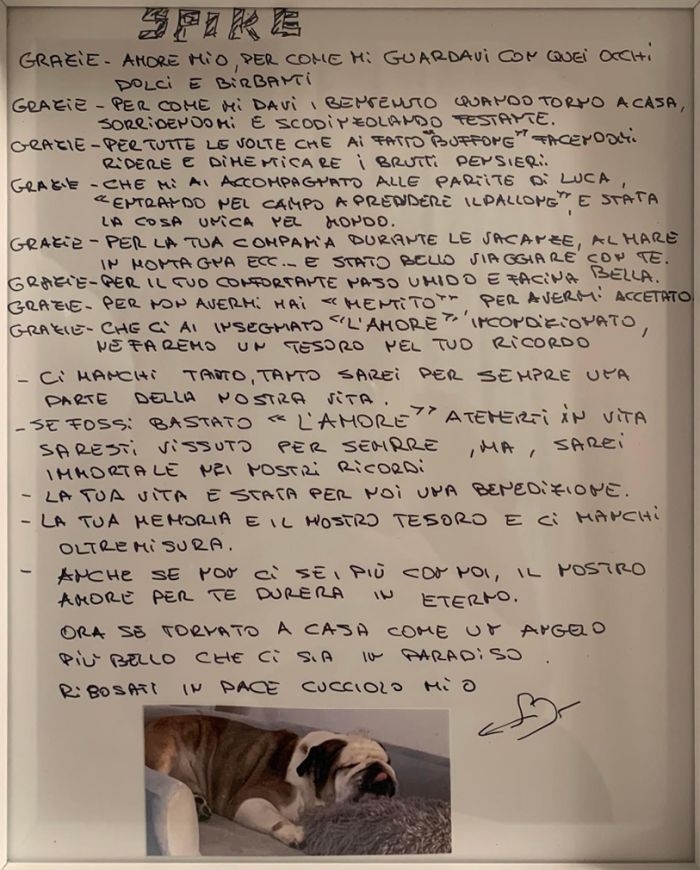 SPIKE
GRAZIE - AMORE MIO, PER COME MI GUARDAVI CON QUEI OCCHI
DOLCI E BIRBANTI
GRAZIE - PER COME MI DAVI I BENVENUTO QUANDO TORNO A CASA,
SORRIDENDOMI E SCODINZOLANDO FESTANTE.
GRAZIE - PER TUTTE LE VOLTE CHE AI FATTO "BUFFONE" FACENDOMI
RIDERE E DIMENTICARE I BRUTTI PENSIERI.
GRAZIE - CHE MI AI ACCOMPAGNATO ALLE PARTITE DI LUCA,
"ENTRANDO NEL CAMPO A PRENDERE IL PALLONE", E STATA
LA COSA UNICA NEL MONDO.
GRAZIE - PER LA TUA COMPANIA DURANTE LE VACANZE, AL MARE
IN MONTAGNA ECC... E STATO BELLO VIAGGIARE CON TE.
GRAZIE - PER IL TUO CONFORTANTE NASO UMIDO E FACINA BELLA.
GRAZIE - PER NON AVERMI MAI "MENTITO" PER AVERMI ACCETATO
GRAZIE - CHE CI AI INSEGNATO "L'AMORE" INCONDIZIONATO,
NE FAREMO UN TESORO NEL TUO RICORDO
- CI MANCHI TANTO, TANTO SAREI PER SEMPRE UNA
PARTE DELLA NOSTRA VITA.
- SE FOSSI BASTATO "L'AMORE" A TENERTI IN VITA
SARESTI VISSUTO PER SEMPRE, MA, SAREI
IMMORTALE NEI NOSTRI RICORDI
- LA TUA VITA E STATA PER NOI UNA BENEDIZIONE.
- LA TUA MEMORIA E IL NOSTRO TESORO E CI MANCHI
OLTREMISURA.
- ANCHE SE NON CI SEI PIÙ CON NOI, IL NOSTRO
AMORE PER TE DURERA IN ETERNO.
ORA SE TORNATO A CASA COME UN ANGELO
PIÙ BELLO CHE CI SIA IN PARADISO.
RIBOSATI IN PACE CUCCIOLO MIO